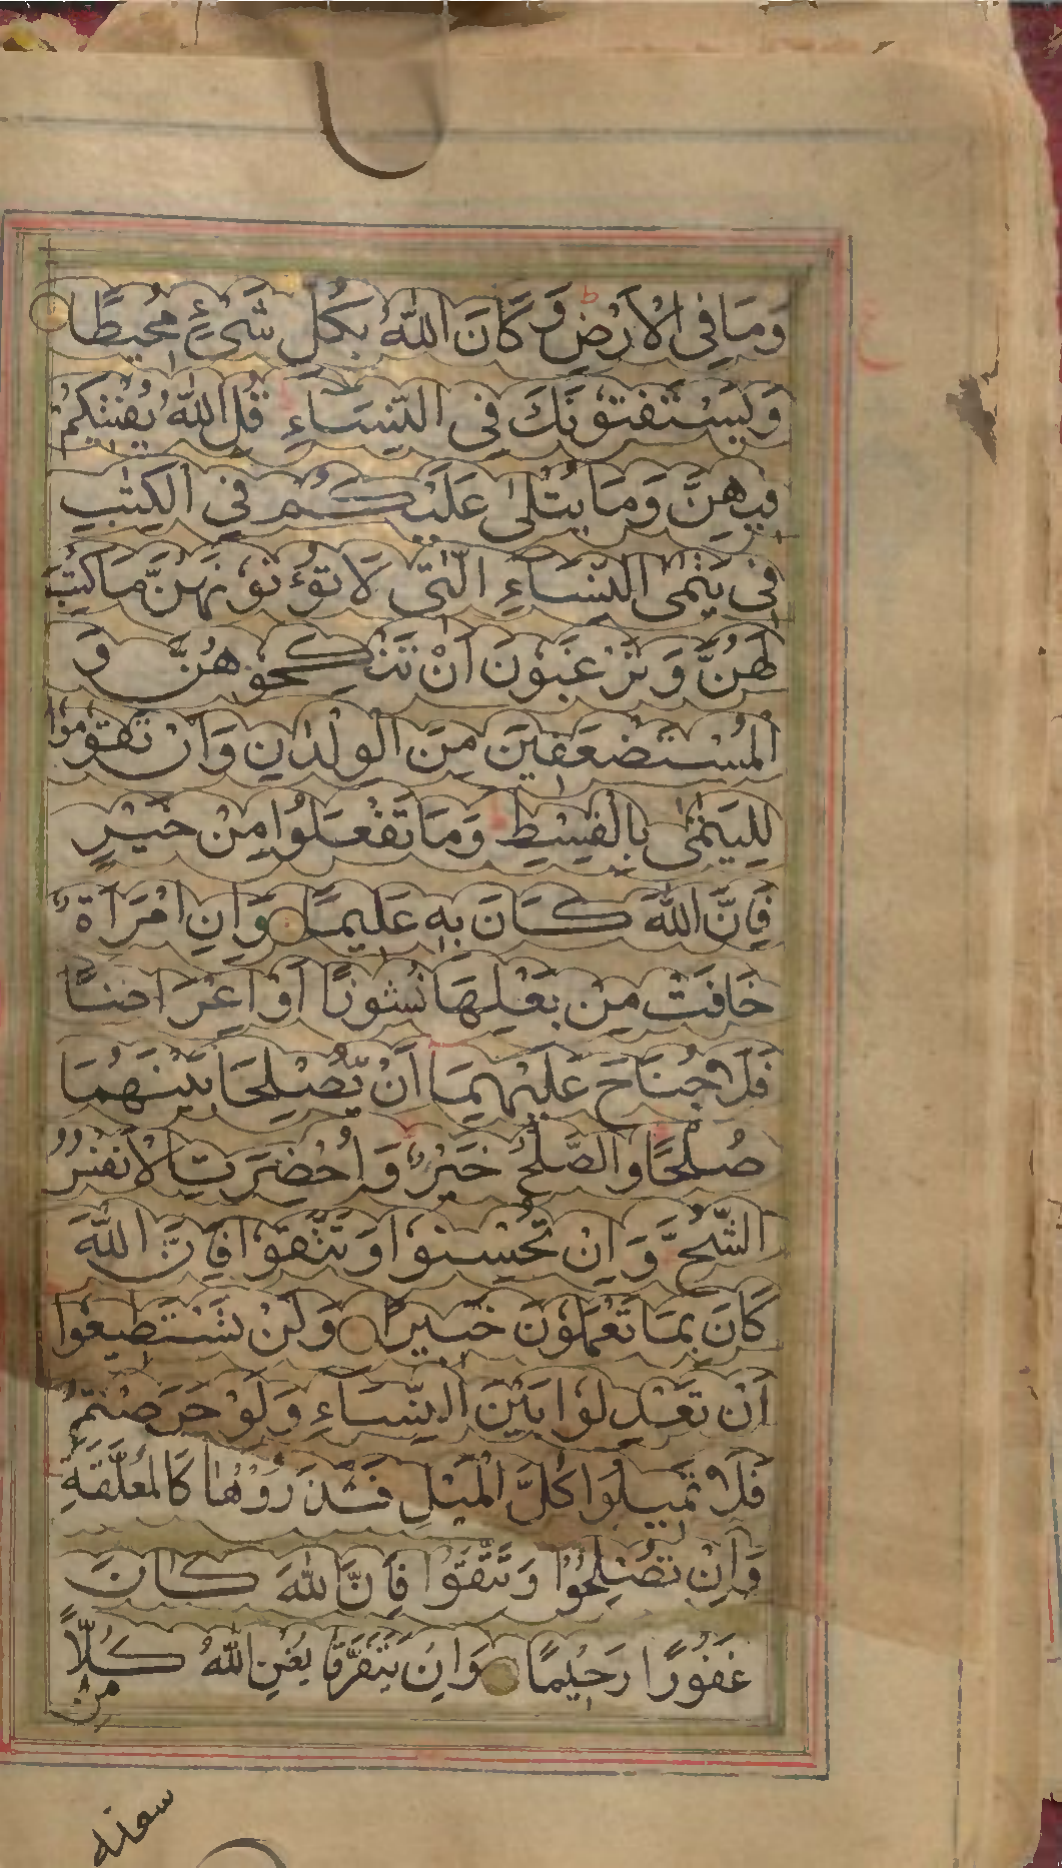 وَمَا فِى الْاَرْضِ ؕ وَكَانَ اللّٰهُ بِكُلِّ شَىْءٍ مُّحِيْطًا
وَيَسْتَفْتُوْنَكَ فِى النِّسَاءِ قُلِ اللّٰهُ يُفْتِيْكُمْ
فِيْهِنَّ وَمَا يُتْلٰى عَلَيْكُمْ فِى الْكِتٰبِ
فِى يَتٰمَى النِّسَاءِ الّٰتِى لَا تُؤْتُوْنَهُنَّ مَا كُتِبَ
لَهُنَّ وَتَرْغَبُوْنَ اَنْ تَنْكِحُوْهُنَّ وَ
الْمُسْتَضْعَفِيْنَ مِنَ الْوِلْدَانِ وَاَنْ تَقُوْمُوْا
لِلْيَتٰمٰى بِالْقِسْطِ وَمَا تَفْعَلُوْا مِنْ خَيْرٍ
فَاِنَّ اللّٰهَ كَانَ بِهٖ عَلِيْمًا وَاِنِ امْرَاَةٌ
خَافَتْ مِنْ بَعْلِهَا نُشُوْزًا اَوْ اِعْرَاضًا
فَلَا جُنَاحَ عَلَيْهِمَا اَنْ يُّصْلِحَا بَيْنَهُمَا
صُلْحًا وَالصُّلْحُ خَيْرٌ وَاُحْضِرَتِ الْاَنْفُسُ
الشُّحَّ وَاِنْ تُحْسِنُوْا وَتَتَّقُوْا فَاِنَّ اللّٰهَ
كَانَ بِمَا تَعْمَلُوْنَ خَبِيْرًا وَلَنْ تَسْتَطِيْعُوْا
اَنْ تَعْدِلُوْا بَيْنَ النِّسَاءِ وَلَوْ حَرَصْتُمْ
فَلَا تَمِيْلُوْا كُلَّ الْمَيْلِ فَتَذَرُوْهَا كَالْمُعَلَّقَةِ
وَاِنْ تُصْلِحُوْا وَتَتَّقُوْا فَاِنَّ اللّٰهَ كَانَ
غَفُوْرًا رَحِيْمًا وَاِنْ يَتَفَرَّقَا يُغْنِ اللّٰهُ كُلًّا
مِنْ
سعته